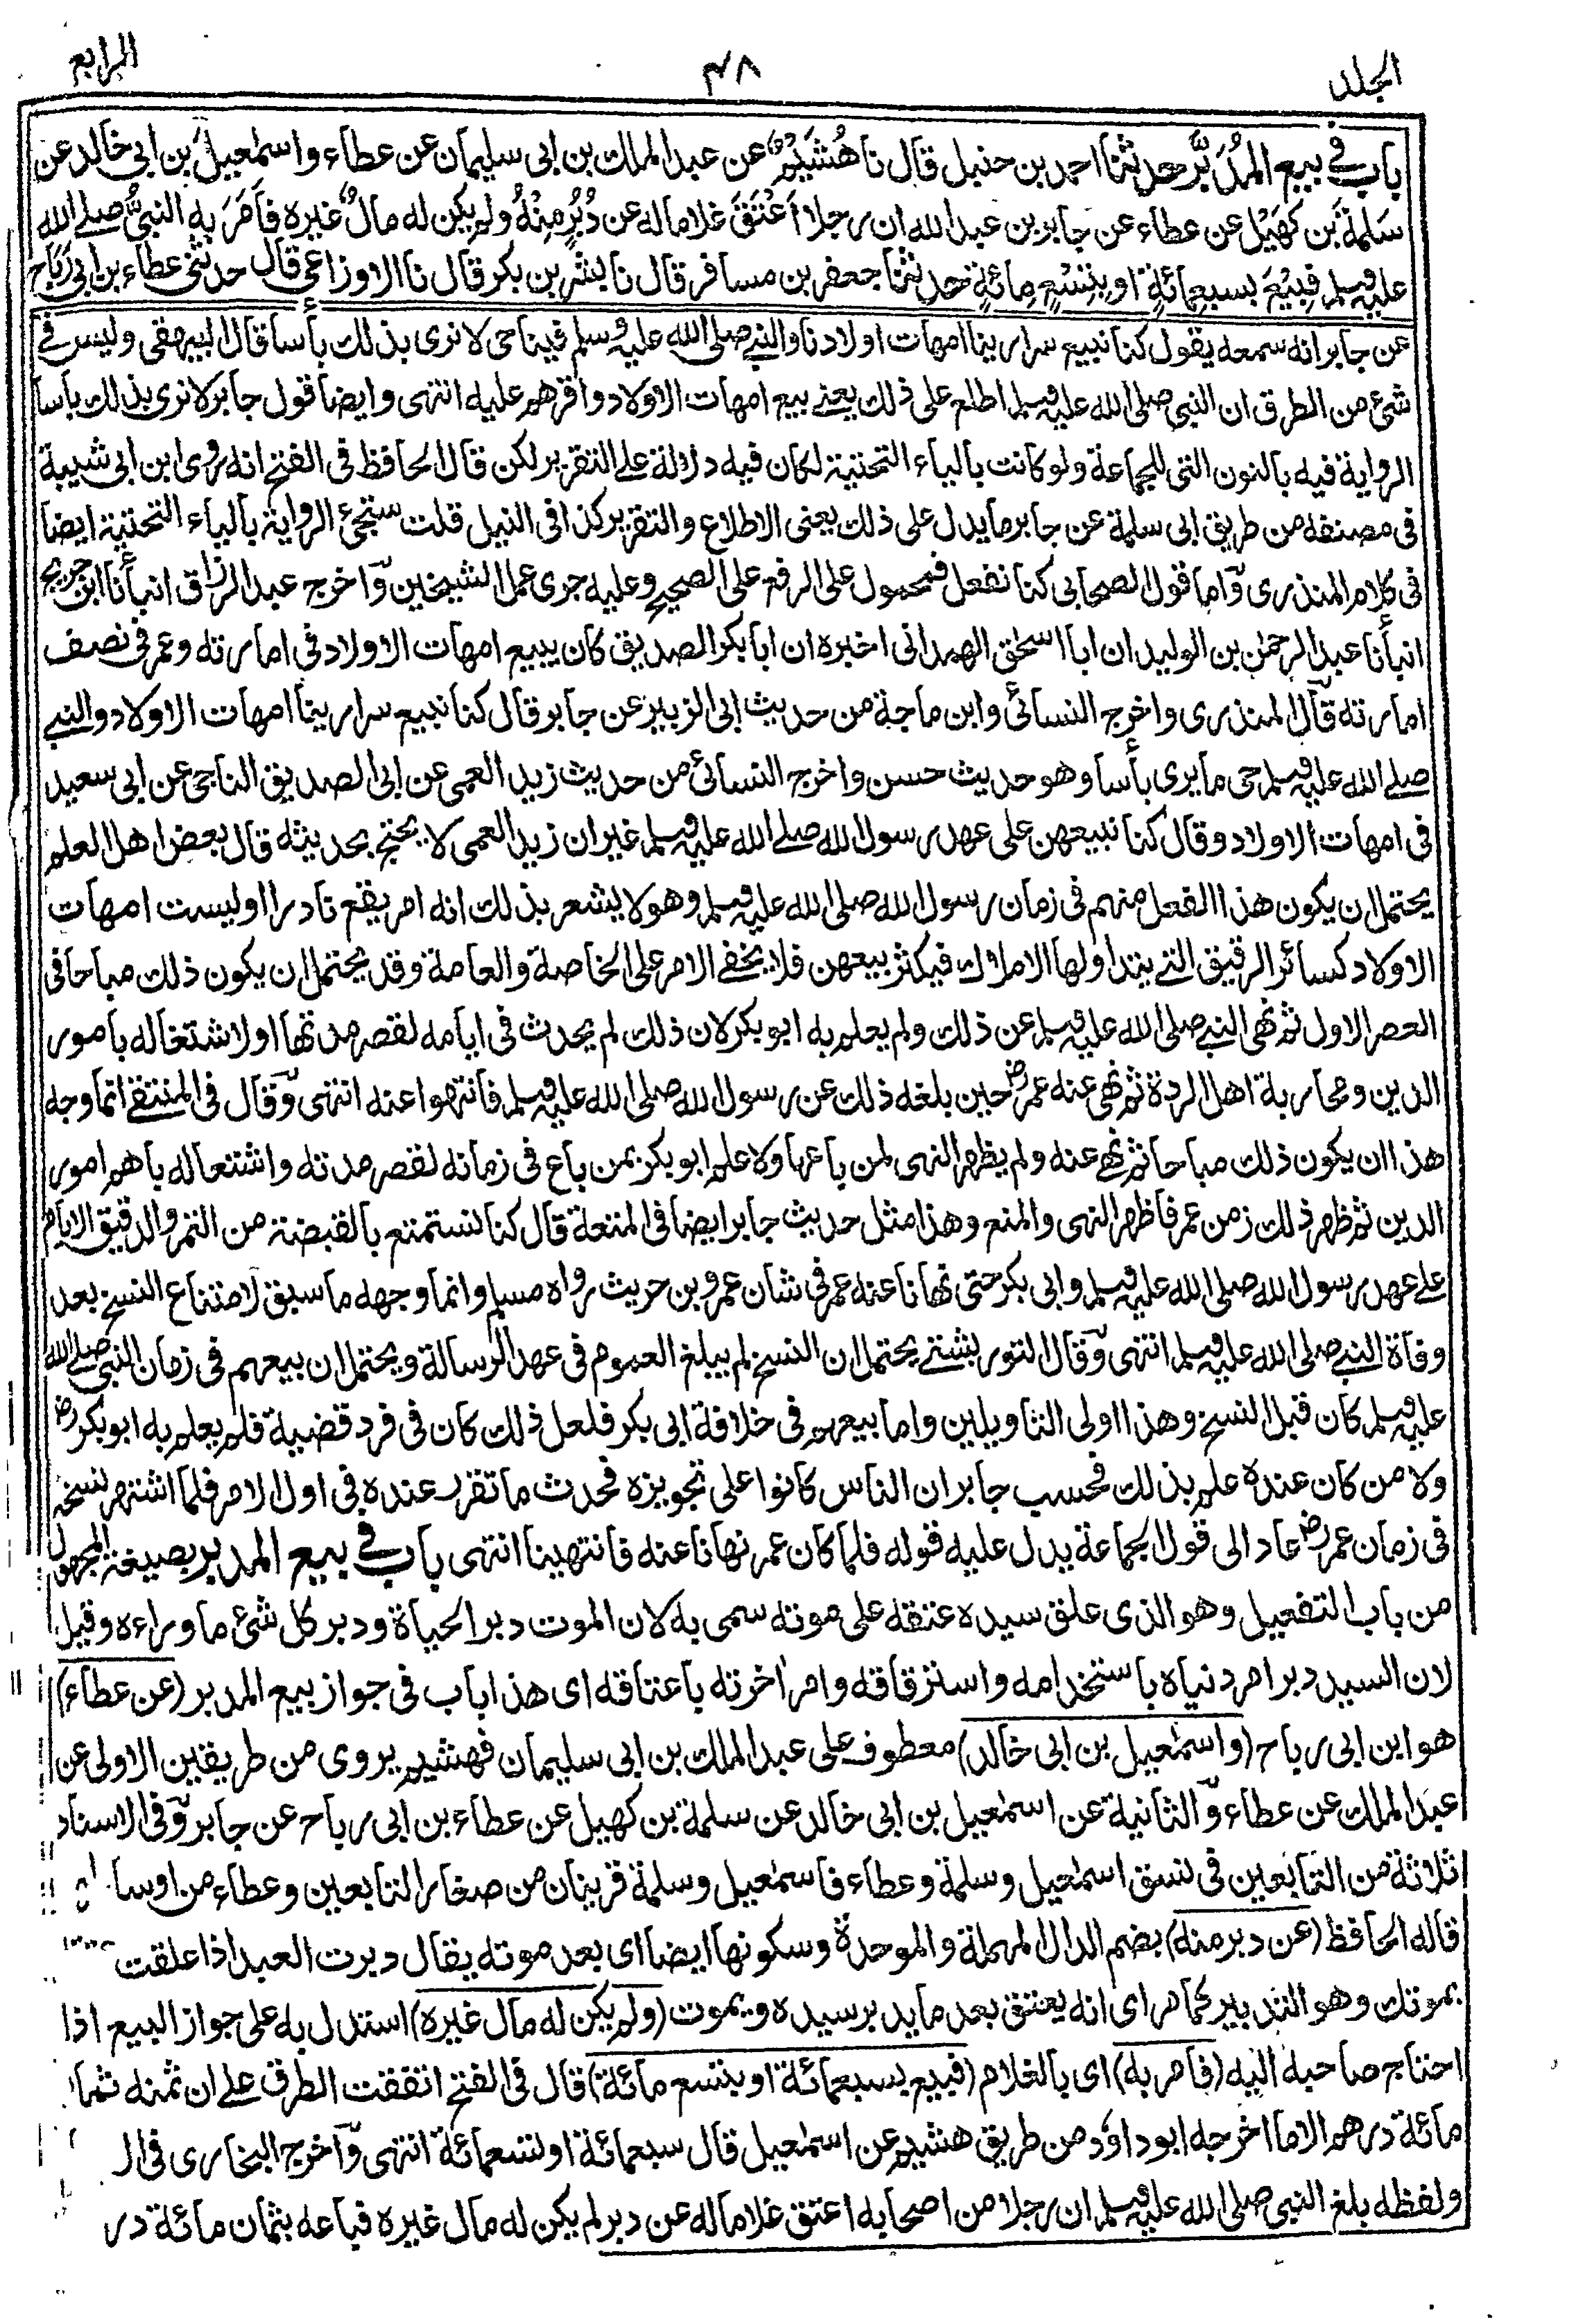 الجلد
٤٨
الرابع
باب في بيع المُدَبَّر حدثنا احمد بن حنبل قال نا هُشَيْمٌ عن عبد الملك بن ابى سليمان عن عطاء واسمٰعيل بن ابى خالد عن
سَلمة بن كُهَيْل عن عطاء عن جابر بن عبد الله ان رجلا اَعْتَقَ غلاما له عن دُبُرٍ مِنْهُ ولم يكن له مالٌ غيره فاَمَرَ به النبيُّ صلى الله
عليه وسلم فَبِيْعَ بسبعِمِائةٍ او بِتِسْعِ مِائةٍ حدثنا جعفر بن مسافر قال نا بشر بن بكر قال نا الاوزاعى قال حدثنى عطاء بن ابى رَبَاح
عن جابر انه سمعه يقول كنا نبيع سرارينا امهات اولادنا والنبي صلى الله عليه وسلم فينا حى لا نرى بذلك بأسا قال البيهقى وليس فى
شئ من الطرق ان النبي صلى الله عليه وسلم اطلع على ذلك يعنى بيع امهات الاولاد واقرهم عليه انتهى وايضا قول جابر لا نرى بذلك باسا
الرواية فيه بالنون التى للجماعة ولو كانت بالياء التحتية لكان فيه دلالة على التقرير لكن قال الحافظ فى الفتح انه روى ابن ابى شيبة
فى مصنفه من طريق ابى سلمة عن جابر ما يدل على ذلك يعنى الاطلاع والتقرير كذا فى النيل قلت ستجئ الرواية بالياء التحتية ايضا
فى كلام المنذرى واما قول الصحابى كنا نفعل فمحمول على الرفع على الصحيح وعليه جرى عمل الشيخين واخرج عبد الرزاق انبأنا ابن جريج
انبأنا عبد الرحمٰن بن الوليد ان ابا اسحٰق الهمدانى اخبره ان ابا بكر الصديق كان يبيع امهات الاولاد فى امارته وعمر فى نصف
امارته قال المنذرى واخرج النسائى وابن ماجة من حديث ابى الزبير عن جابر قال كنا نبيع سرارينا امهات الاولاد والنبي
صلى الله عليه وسلم حى ما يرى بأسا وهو حديث حسن واخرج النسائى من حديث زيد العمى عن ابى الصديق الناجى عن ابى سعيد
فى امهات الاولاد وقال كنا نبيعهن على عهد رسول الله صلى الله عليه وسلم غير ان زيد العمى لا يحتج بحديثه قال بعض اهل العلم
يحتمل ان يكون هذا الفعل منهم فى زمان رسول الله صلى الله عليه وسلم وهو لا يشعر بذلك انه امر يقع نادرا وليست امهات
الاولاد كسائر الرقيق التى يتداولها الاملاك فيكثر بيعهن فلا يخفى الامر على الخاصة والعامة وقد يحتمل ان يكون ذلك مباحا فى
العصر الاول ثم نهى النبي صلى الله عليه وسلم عن ذلك ولم يعلم به ابو بكر لان ذلك لم يحدث فى ايامه لقصر مدتها او لاشتغاله بامور
الدين ومحاربة اهل الردة ثم نهى عنه عمرؓ حين بلغه ذلك عن رسول الله صلى الله عليه وسلم فانتهوا عنه انتهى وقال فى المنتقى انما وجه
هذا ان يكون ذلك مباحا ثم نهى عنه ولم يظهر النهى لمن باعها ولا علم ابو بكر بمن باع فى زمانه لقصر مدته واشتغاله باهم امور
الدين ثم ظهر ذلك زمن عمر فاظهر النهى والمنع وهذا مثل حديث جابر ايضا فى المتعة قال كنا نستمتع بالقبضة من التمر والدقيق الايام
على عهد رسول الله صلى الله عليه وسلم وابى بكر حتى نهانا عنه عمر فى شان عمرو بن حريث رواه مسلم وانما وجهه ما سبق لامتناع النسخ بعد
وفاة النبي صلى الله عليه وسلم انتهى وقال التوربشتى يحتمل ان النسخ لم يبلغ العموم فى عهد الرسالة ويحتمل ان بيعهم فى زمان النبي صلى الله
عليه وسلم كان قبل النسخ وهذا اولى التاويلين واما بيعهم فى خلافة ابى بكر فلعل ذلك كان فى فرد قضية فلم يعلم به ابو بكرؓ
ولا من كان عنده علم بذلك فحسب جابر ان الناس كانوا على تجويزه فحدث ما تقرر عنده فى اول الامر فلما اشتهر نسخه
فى زمان عمرؓ عاد الى قول الجماعة يدل عليه قوله فلما كان عمر نهانا عنه فانتهينا انتهى باب في بيع المدبر بصيغة المجهول
من باب التفعيل وهو الذى علق سيده عتقه على موته سمى به لان الموت دبر الحياة ودبر كل شئ ما وراءه وقيل
لان السيد دبر امر دنياه باستخدامه واسترقاقه وامر اٰخرته باعتاقه اى هذا باب فى جواز بيع المدبر (عن عطاء)
هو ابن ابى رباح (واسمٰعيل بن ابى خالد) معطوف على عبد الملك بن ابى سليمان فهشيم يروى من طريقين الاولى عن
عبد الملك عن عطاء والثانية عن اسمٰعيل بن ابى خالد عن سلمة بن كهيل عن عطاء بن ابى رباح عن جابر وفى الاسناد
ثلاثة من التابعين فى نسق اسمٰعيل وسلمة وعطاء فاسمٰعيل وسلمة قرينان من صغار التابعين وعطاء من اوسا
قاله الحافظ (عن دبر منه) بضم الدال المهملة والموحدة وسكونها ايضا اى بعد موته يقال دبرت العبد اذا علقت
بموتك وهو التدبير كما مر اى انه يعتق بعد ما يدبر سيده ويموت (ولم يكن له مال غيره) استدل به على جواز البيع اذا
احتاج صاحبه اليه (فامر به) اى بالغلام (فبيع بسبعمائة او بتسع مائة) قال فى الفتح اتفقت الطرق على ان ثمنه ثما
مائة درهم الا ما اخرجه ابو داؤد من طريق هشيم عن اسمٰعيل قال سبعمائة او تسعمائة انتهى واخرج البخارى فى ال
ولفظه بلغ النبي صلى الله عليه وسلم ان رجلا من اصحابه اعتق غلاما له عن دبر لم يكن له مال غيره فباعه بثمان مائة در